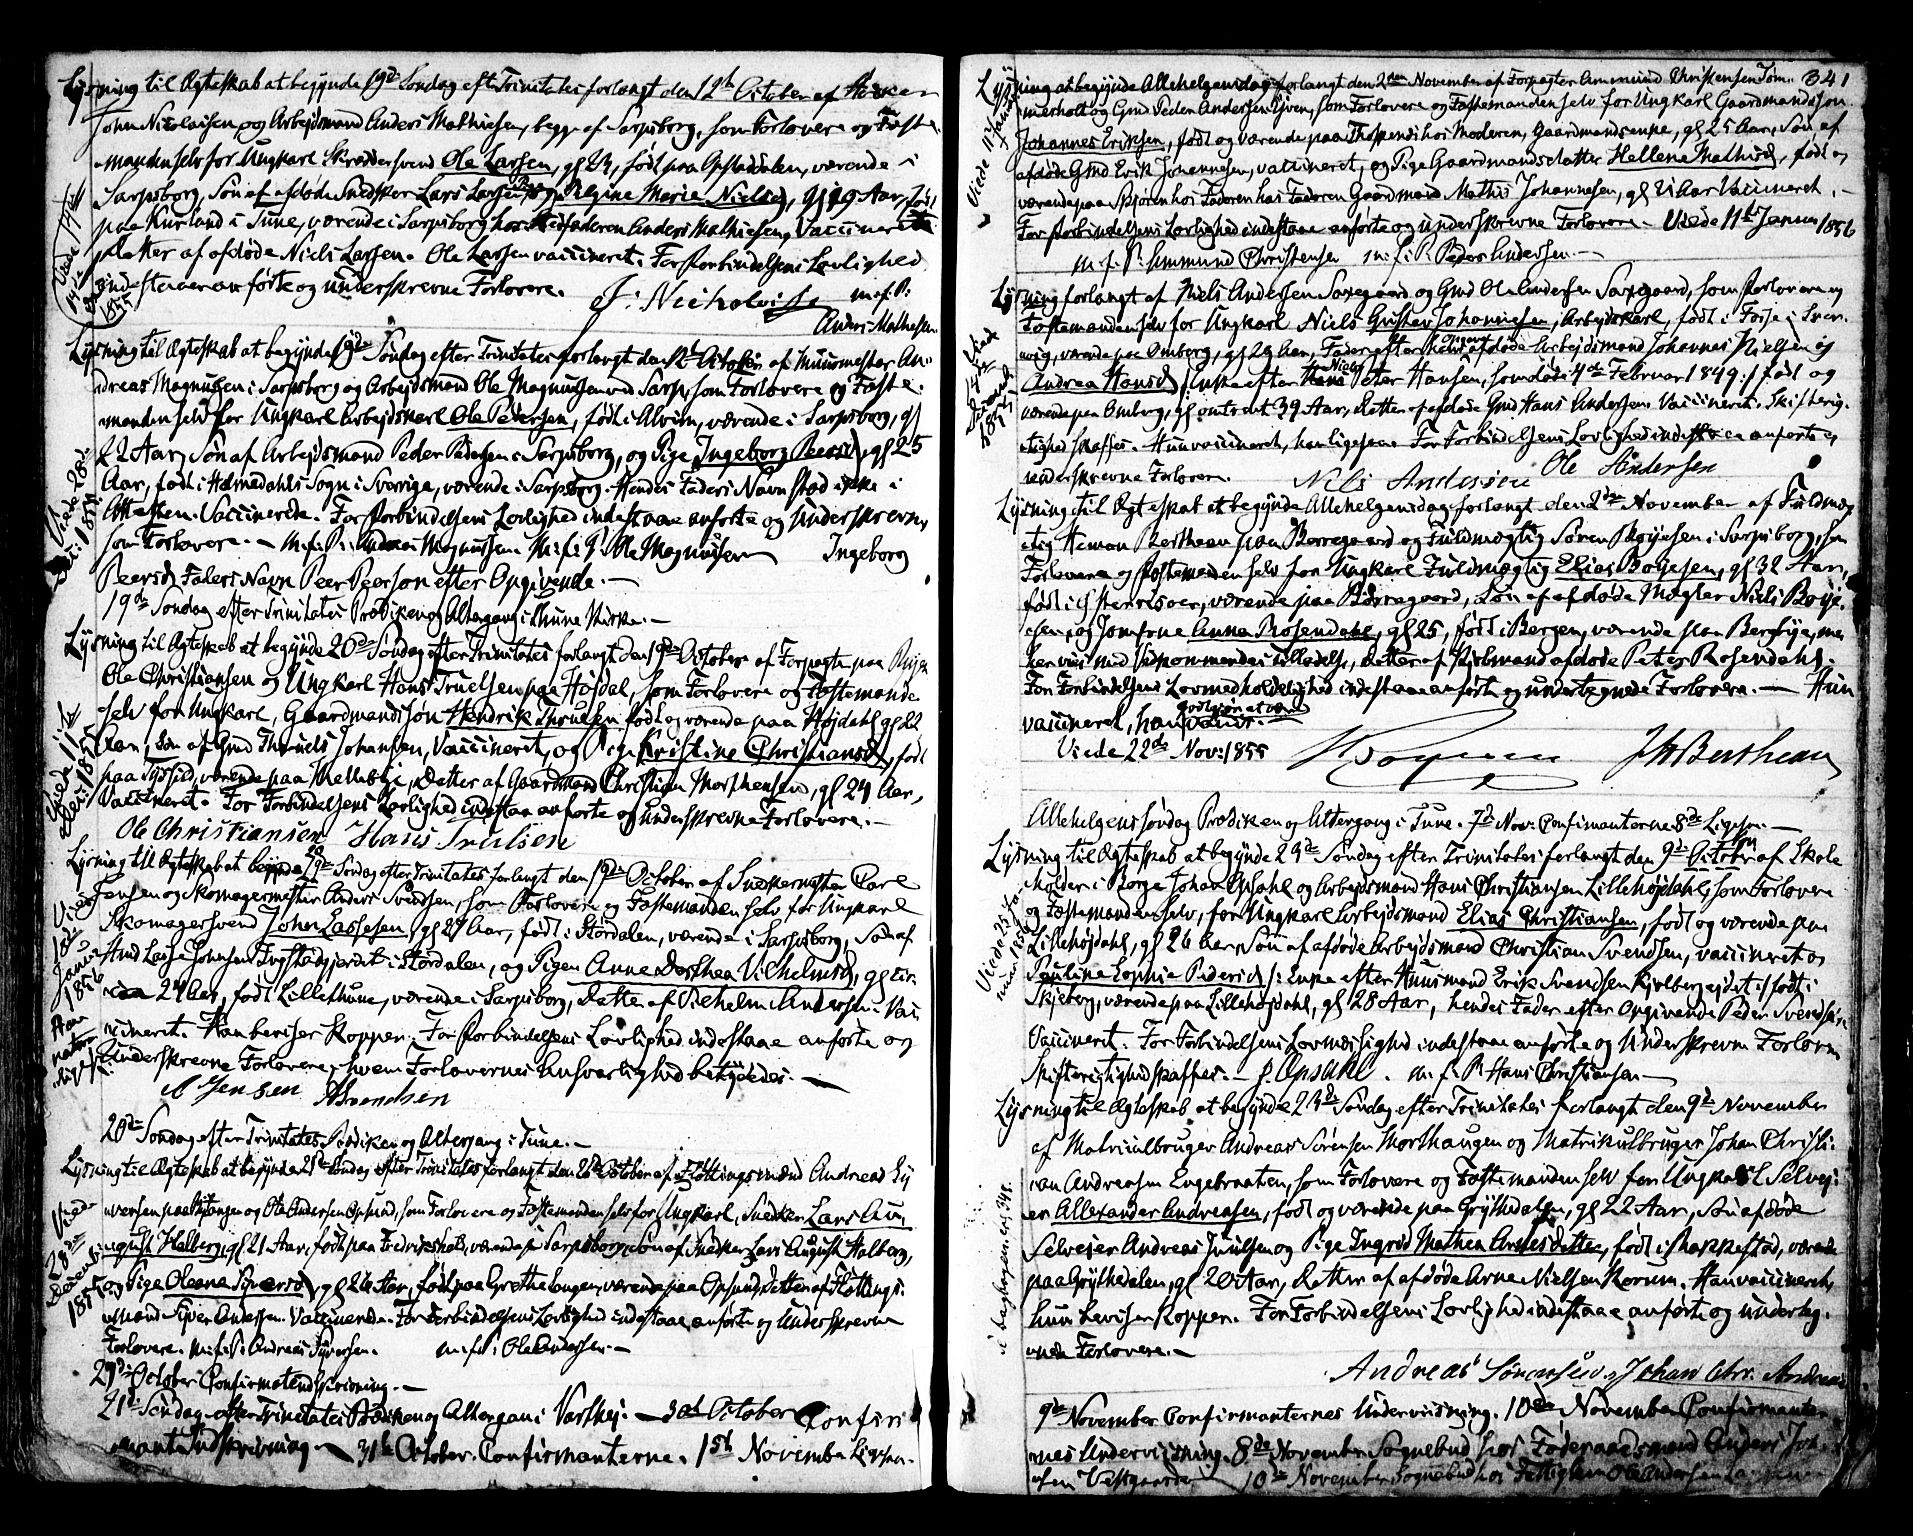 Lysning til Ægteskab at begynde 19de Søndag eft Trinitates forlangt den 12te October af
John Nicolaisen og Arbeidsmand Anders Mathiesen, begge af Sarpsborg, som Forlovere og Fæste-
manden selv for Ungkarl Skræddersvend Ole Larssen, gl 24, født paa Opstaddalen, værende i
Sarpsborg, Søn af afdøde Snedker Lars Larssen og Pige Marie Nielsd, gl 19 Aar, født
paa Kurland i Tune, værende i Sarpsborg hos Stedfaderen Anders Mathiesen, Vaccineret
Datter af afdøde Niels Larssen. Ole Larssen vaccineret. For Forbindelsens Lovlighed
indestaae anførte og underskrevne Forlovere. J. Nicholaisen m. f. P.
Anders Mathiesen
Viede 14de 1855
Lysning til Ægteskab at begynde 19de Søndag efter Trinitates forlangt den 12te October af Muurmester An-
dreas Magnusen i Sarpsborg og Arbeidsmand Ole Magnussen ved Sarp, som Forlovere og Fæste-
manden selv for Ungkarl Arbejdskarl Ole Pedersen, født i Alvim, værende i Sarpsborg, gl
22 Aar, Søn af Arbejdsmand Peder Pedersen i Sarpsborg, og Pige Ingeborg Peersd, gl 25
Aar, født i Holmedahls Sogn i Sverrige, værende i Sarpsborg. Hendes Faders Navn stod ikke i
Attesten. Vaccinerede. For Forbindelsens Lovlighed indestaae anførte og Underskrevne
som Forlovere. — m. f. P. Andreas Magnussen. m. f. P. Ole Magnussen Ingeborg
Peersd Faders Navn Peer Peerson efter Opgivende. —
Viede 28de 1855
19de Søndag efter Trinitates Prædiken og Altergang i Thune Kirke. —
Lysning til Ægteskab at begynde 20de Søndag efter Trinitates forlangt den 19de October af Forpagter paa
Ole Christiansen og Ungkarl Hans Truelsen paa Højdal, som Forlovere og Fæstemanden
selv for Ungkarl, Gaardmandssøn Hendrik Thruelsen født og værende paa Højdahl gl 22
Aar, Søn af Gmd Thruels Johansen, Vaccineret, og Pige Kristine Christiansd, født
paa, værende paa Mellebye, Datter af Gaardmand Christian Morthensen, gl 24 Aar,
Vaccineret. For Forbindelsens Lovlighed indestaae anførte og underskrevne Forlovere. —
Ole Christiansen Hans Truelsen
Viede 11te 1855
Lysning til Ægteskab at begynde 20de Søndag efter Trinitates forlangt den 19de October af Snedkermester Carl
Jensen og Skomagermester Anders Svendsen, som Forlovere og Fæstemanden selv for Ungkarl
Skomagersvend John Lassesen, gl 27 Aar, født i Stordalen, værende i Sarpsborg, Søn af
Hmd Lasse Johnsen i Stordalen, og Pigen Anne Dorthea Vilhelmsd, gl cir-
ca 24 Aar, født Lillethune, værende i Sarpsborg, Datter af Vilhelm Andersen. Vac-
cineret. Han beviser Kopper. For Forbindelsens Lovlighed indestaae anførte og
Underskrevne Forlovere, hvem Forlovernes Ansvarlighed betydedes. —
C Jensen ASvendsen
Viede 18de Januar 1856
20de Søndag efter Trinitates Prædiken og Altergang i Tune. —
Lysning til Ægteskab at begynde 21de Søndag efter Trinitates forlangt den 26de October af Fløttingsmand Andreas Sy
versen paa og Ole Andersen Opsund, som Forlovere og Fæstemanden selv for Ungkarl, Snedker Lars Au-
gust Halberg, gl 21 Aar, født paa Fredrikshald, værende i Sarpsborg, Søn af Snedker Lars August Halberg,
og Pige Oleana Syversd, gl 26 Aar, født paa Grøthe Langen, værende paa Opsund, Datter af Fløttings-
mand Syver Andersen. Vaccinerede. For Forbindelsens Lovlighed indestaae anførte og Underskrevne
Forlovere. m. f. P. Andreas Syversen. m. f. P. Ole Andersen. —
Viede 28de Decemb: 1855
29de October Confirmations
21de Søndag efter Trinitates Prædiken og Altergang i Varthej. — 30te October Confir
mant Indskrivning — 31te October Confirmanterne. 1ste November
341
Lysning at begynde Allehelgensdag forlangt den 2den November af Forpagter Ammund Christensen Tom-
merholt og Gmd Peder Andersen Green, som Forlovere og Fæstemanden selv for Ungkarl Gaardmandssøn
Johannes Eriksen, født og værende paa hos Moderen, Gaardmandsenke, gl 25 Aar, Søn af
afdøde Gmd Erik Johannesen, vaccineret, og Pige Gaardmandsdatter Hellene Mathisd, født og
værende paa Skjøren hos Faderen hos Faderen Gaardmand Mathis Johannesen, gl 21 Aar Vaccineret. —
For Forbindelsens Lovlighed indestaae anførte og underskrevne Forlovere — Viede 11te Januar 1856
m. f. P. Ammund Christensen m. f. P. Peder Andersen. —
Viede 11te Januar
Lysning forlangt af Niels Andersen Saxegaard og Gmd Ole Andersen Saxegaard, som Forlovere og
Fæstemanden selv for Ungkarl Niels Gustav Johannesen, Arbejdskarl, født i Fosse i Sver-
rig, værende paa Omberg, gl 29 Aar, Fader efter hans Opgivende afdøde Arbejdsmand Johannes Nielsen og
Andrea Hansd /: Enke efter Niels Peter Hansen, som døde 4de Februar 1849 :/ født og
værende paa Omberg, gl omtrent 39 Aar, Datter af afdøde Gmd Hans Andersen. Vaccineret. Skifterig-
tighed skaffes. Hun vaccineret, han ligesaa. For Forbindelsens Lovlighed indestaae anførte og
underskrevne Forlovere. Nils Andersen Ole Andersen
Lysning til Ægteskab at begynde Allehelgensdag forlangt den 2den November af Fuldmæg-
tig Herman Bertheau paa Borregaard og Fuldmægtig Søren Boyesen i Sarpsborg, som
Forlovere og Fæstemanden selv for Ungkarl Fuldmægtig Elias Boyesen, gl 32 Aar,
født i Østerrisoer, værende paa Borregaard, Søn af afdøde Mægler Niels Boye-
sen, og Jomfrue Anna Rosendahl, gl 25, født i Bergen, værende paa Bergbye, men
her vies med Vedkommendes Tilladelse, Datter af Kjøbmand afdøde Peter Rosendahl.
For Forbindelsens Lovmedholdelighed indestaae anførte og undertegnede Forlovere. — Hun
vaccineret, han godtgjør at være vaccr. —
Viede 22de Nov: 1855 Boyesen JHBertheau
Allehelgens Søndag Prædiken og Altergang i Tune. 7de Nov: Confirmanterne 8de —
Lysning til Ægteskab at begynde 23de Søndag efter Trinitates forlangt den 9de October af Skole
holder i Borge Johan Opsahl og Arbejdsmand Hans Christiansen Lillehøjdahl, som Forlovere
og Fæstemanden selv, for Ungkarl Arbejdsmand Elias Christiansen, født og værende paa
Lillehøjdahl, gl 26 Aar, Søn af afdøde Arbejdsmand Christian Svendsen, vaccineret og
Pauline Sophie Pedersd /: Enke efter Huusmand Erik Svendsen Kjølbergejdet :/ født i
Skjeberg, værende paa Lillehøjdahl, gl 28 Aar, hendes Fader efter Opgivende Peder Svendsen.
Vaccineret. For Forbindelsens Lovmæssighed indestaae anførte og Underskrevne Forlovere
Skifterigtighed skaffes. — J. Opsahl. m. f. P. Hans Christiansen —
Viede 25 Januar 1856
Lysning til Ægteskab at begynde 23de Søndag efter Trinitates forlangt den 9de November
af Matriculbruger Andreas Sørensen Morthaugen og Matrikulbruger Johan Christi-
an Andreasen Engebraaten, som Forlovere og Fæstemanden selv for Ungkarl Selvej-
er Allexander Andreasen, født og værende paa Grythedalen, gl 22 Aar, Søn af døde
Selvejer Andreas Truulsen og Pige Ingrod Mathea Arnesdatter, født i Rakkestad, værende
paa Grythedalen, gl 20 Aar, Datter af afdøde Arne Nielsen Korum. Han vaccineret,
hun beviser Kopper. For Forbindelsens Lovlighed indestaae anførte og underteg-
nede Forlovere. —
Andreas Sørensen Johan Chr. Andreas
9de November Confirmanternes Underviisning. 10de November Confirmanter-
nes Underviisning. 8de November Sognebud hos Føderaadsmand Anders Joh
sen Vestgaarden 10de November Sognebud hos Fattiglem Ole Andersen